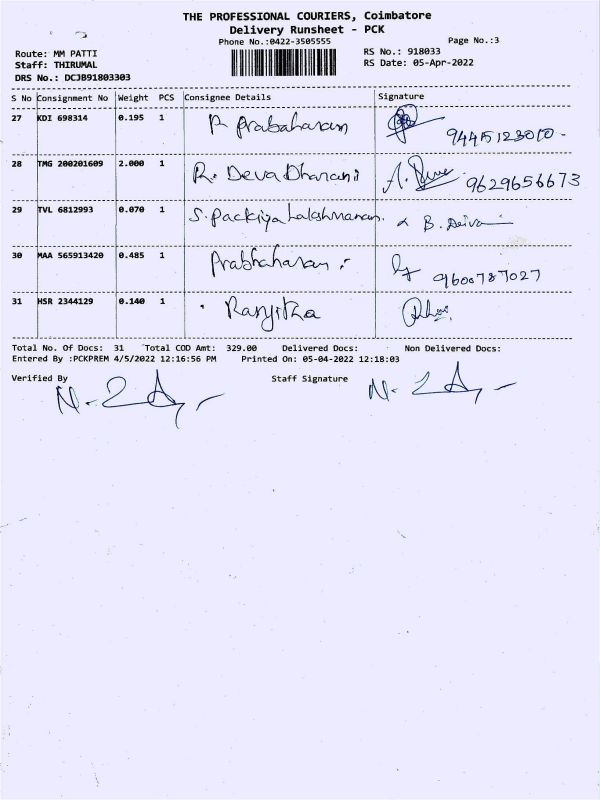 THE PROFESSIONAL COURIERS, Coimbatore
Delivery Runsheet - PCK
Phone No.:0422-3505555
Page No.:3
Route: MM PATTI
RS No.: 918033
Staff: THIRUMAL
RS Date: 05-Apr-2022
DRS No.: DCJB91803303
S No Consignment No Weight PCS Consignee Details Signature
27 KDI 698314 0.195 1 P. Prabaharan 9445123010-
28 TMG 200201609 2.000 1 R. Deva Dharani 9629656673
29 TVL 6812993 0.070 1 S. Packiya Lakshmanan. B. Deiva
30 MAA 565913420 0.485 1 Prabhaharan 9600787027
31 HSR 2344129 0.140 1 Ranjitha
Total No. Of Docs: 31 Total COD Amt: 329.00 Delivered Docs: Non Delivered Docs:
Entered By :PCKPREM 4/5/2022 12:16:56 PM Printed On: 05-04-2022 12:18:03
Verified By Staff Signature